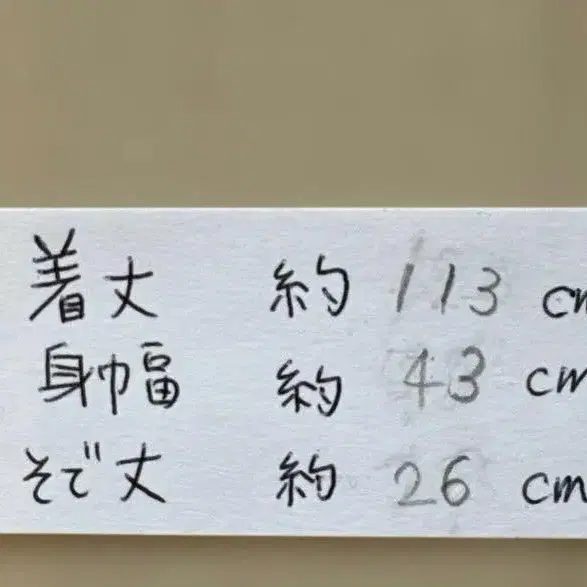 着丈 約 113 cm
身幅 約 43 cm
そで丈 約 26 cm